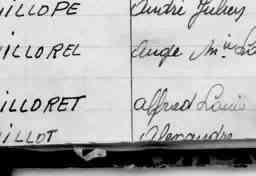 ILLOPE André Jules
ILLOREL Ange
ILLORET Alfred Louis
ILLOT Alexandre